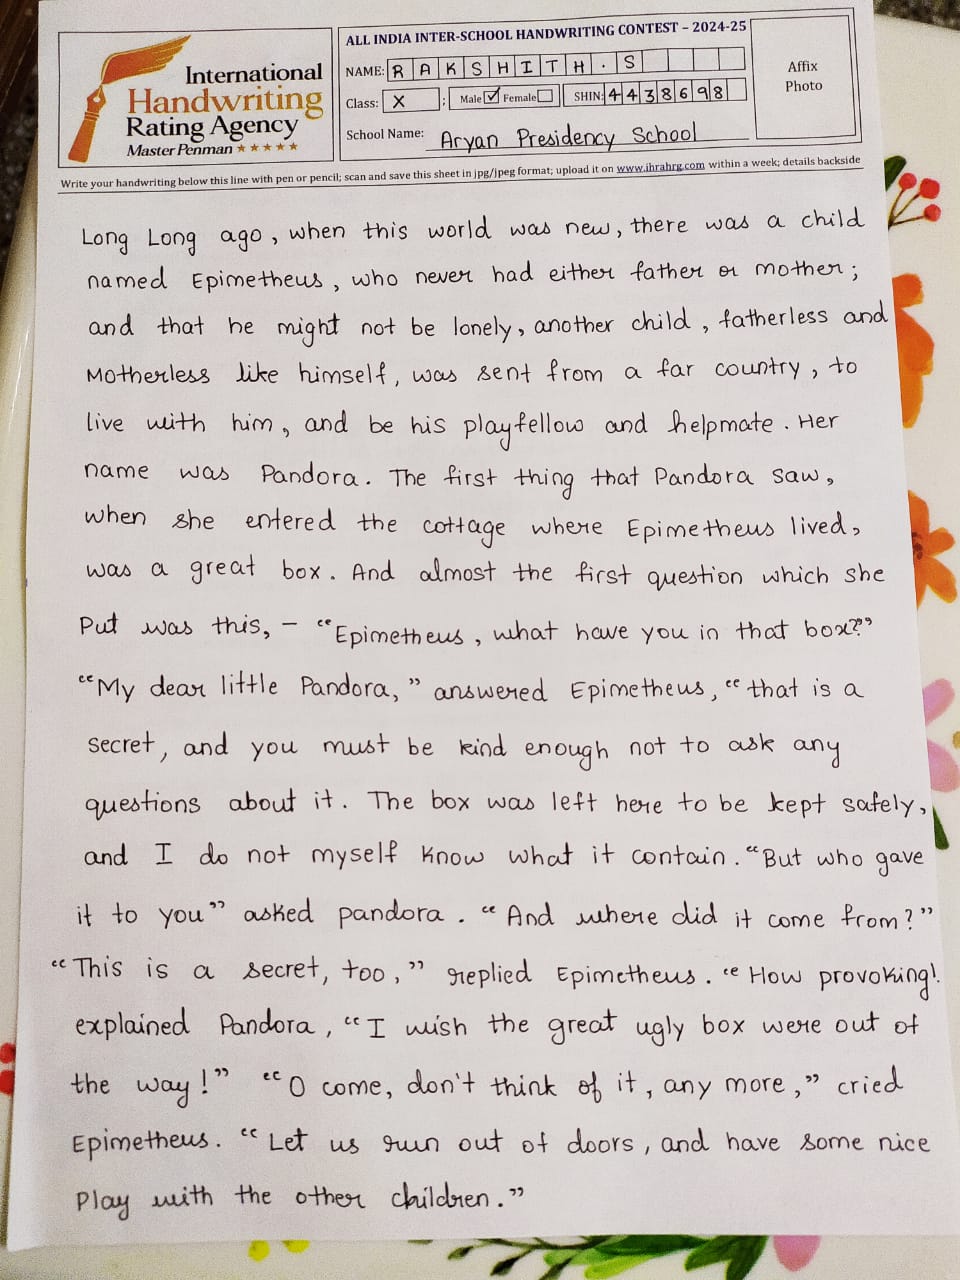 International
Handwriting
Rating Agency
Master Penman ★★★★★
ALL INDIA INTER-SCHOOL HANDWRITING CONTEST – 2024-25
NAME: RAKSHITH.S
Class: X ; Male ✓ Female SHIN: 4438698
School Name: Aryan Presidency School
Affix
Photo
Write your handwriting below this line with pen or pencil; scan and save this sheet in jpg/jpeg format; upload it on www.ihrahrg.com within a week; details backside
Long Long ago, when this world was new, there was a child
named Epimetheus, who never had either father or mother;
and that he might not be lonely, another child, fatherless and
Motherless like himself, was sent from a far country, to
live with him, and be his playfellow and helpmate. Her
name was Pandora. The first thing that Pandora saw,
when she entered the cottage where Epimetheus lived,
was a great box. And almost the first question which she
Put was this, – “Epimetheus, what have you in that box?”
“My dear little Pandora,” answered Epimetheus, “that is a
secret, and you must be kind enough not to ask any
questions about it. The box was left here to be kept safely,
and I do not myself know what it contain. “But who gave
it to you” asked pandora. “And where did it come from?”
“This is a secret, too,” replied Epimetheus. “How provoking!
explained Pandora, “I wish the great ugly box were out of
the way!” “O come, don't think of it, any more,” cried
Epimetheus. “Let us run out of doors, and have some nice
Play with the other children.”